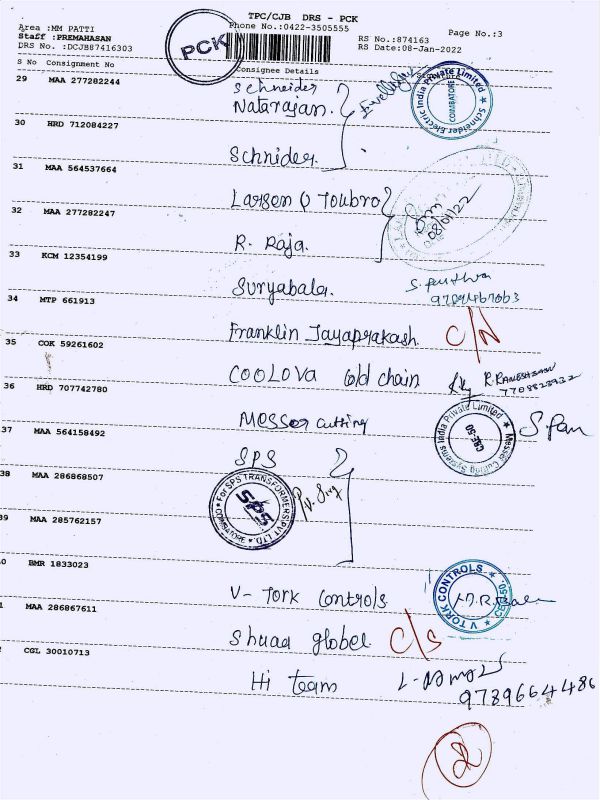 TPC/CJB DRS - PCK
Area :MM PATTI
Phone No.:0422-3505555
Page No.:3
Staff :PREMAHASAN
RS No.:874163
DRS No. :DCJB87416303
RS Date:08-Jan-2022
PCK
S No Consignment No
Consignee Details
29 MAA 277282244
Schneider
Natarajan.
Schneider Electric India Private Limited
COIMBATORE
30 HRD 712084227
Schnider.
31 MAA 564537664
Larsen & Toubro
08/01/22
32 MAA 277282247
R. Raja.
33 KCM 12354199
Suryabala.
34 MTP 661913
Franklin Jayaprakash.
C/N
35 COK 59261602
COOLOVA Cold chain
R. RANESHBABU
7708828932
36 HRD 707742780
Messer cutting
Messer Cutting Systems India Private Limited
CBE-50
37 MAA 564158492
SPS
38 MAA 286868507
For SPS TRANSFORMERS PVT. LTD.
SPS
COIMBATORE
39 MAA 285762157
0 BMR 1833023
V- Tork Controls
V TORK CONTROLS
1 MAA 286867611
Shuaa global.
C/S
2 CGL 30010713
Hi team
9789664486
2